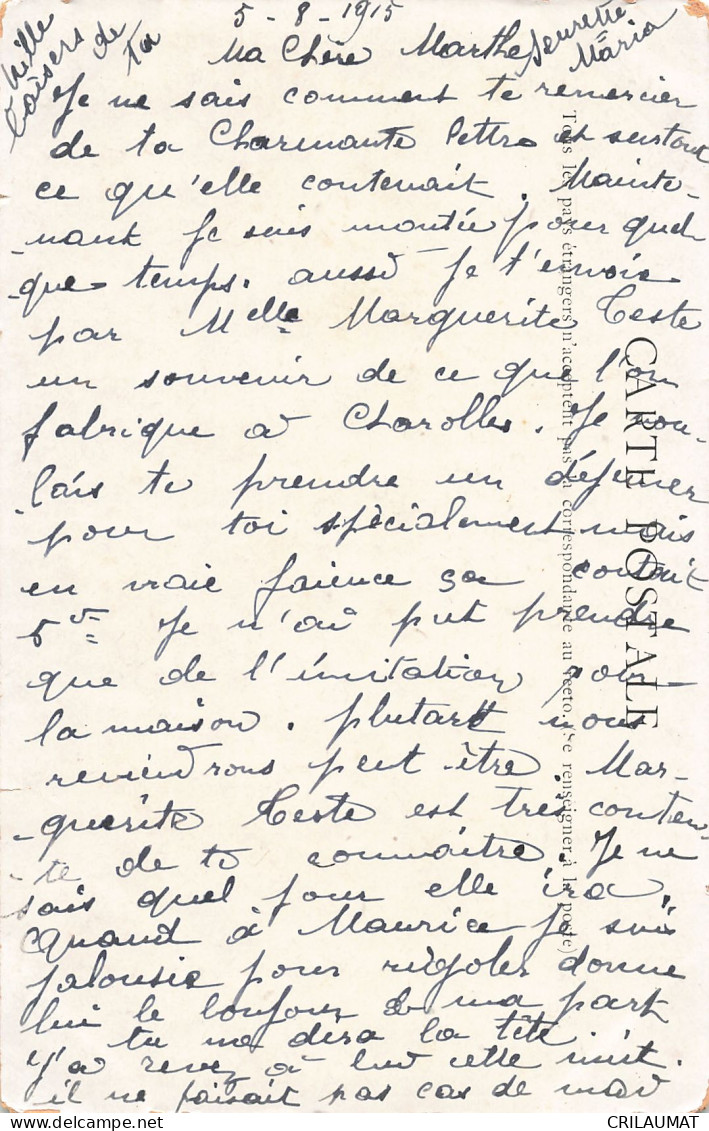 5-8-1915
Mille
baisers de
ta
soeurette
Maria
Ma Chère Marthe
Je ne sais comment te remercier
de ta Charmante lettre et surtout
ce qu'elle contenait. Mainte-
-nant Je suis montée pour quel-
-que temps. aussi Je t'envoie
par Melle Marguerite Teste
un souvenir de ce que l'on
fabrique à Charolles. Je vou-
lais te prendre un déjeuner
pour toi spécialement mais
en vraie faience ça coutait
5 Je n'ai put prendre
que de l'imitation pour
la maison. plutart nous
reviendrons peut être. Mar-
-guerite Teste est très conten-
te de te connaitre. Je ne
sais quel jour elle ira,
Quand à Maurice Je suis
jalousie pour rigoler donne
lui le bonjour de ma part
tu me diras la tête
Y'a revez à lui cette nuit.
il ne faisait pas cas de moi
CARTE POSTALE
Tous les pays étrangers n'acceptent pas la correspondance au recto. (Se renseigner à la poste)
CRILAUMAT